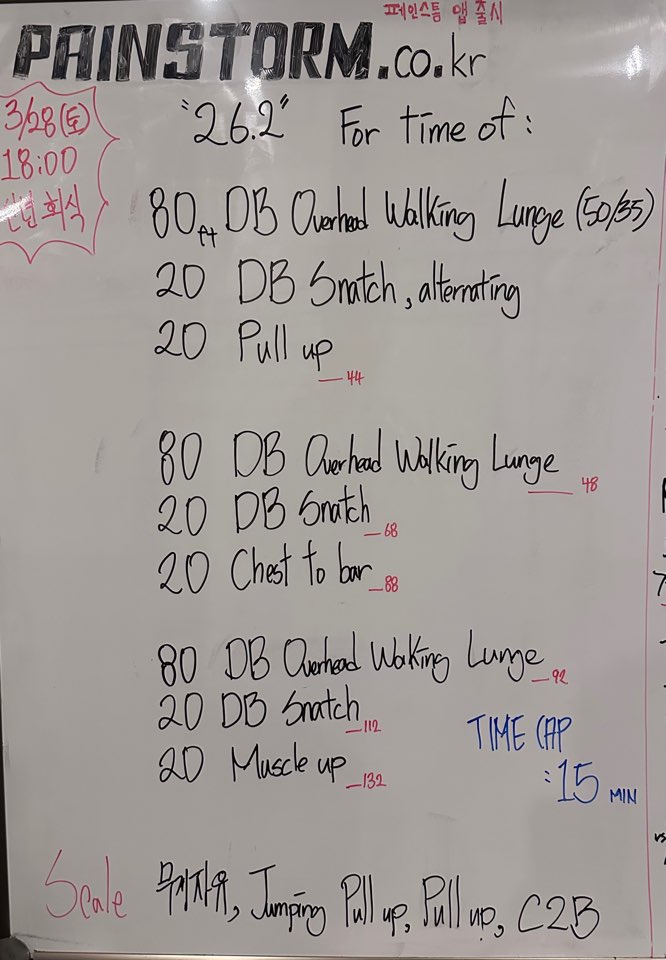 페인스톰 앱 출시
PAINSTORM.co.kr
3/28(토)
18:00
신년회식
"26.2" For time of:
80ft DB Overhead Walking Lunge (50/35)
20 DB Snatch, alternating
20 Pull up
44
80 DB Overhead Walking Lunge
48
20 DB Snatch
68
20 Chest to bar
88
80 DB Overhead Walking Lunge
92
20 DB Snatch
112
20 Muscle up
132
TIME CAP
:15 MIN
Scale 무게자유, Jumping Pull up, Pull up, C2B